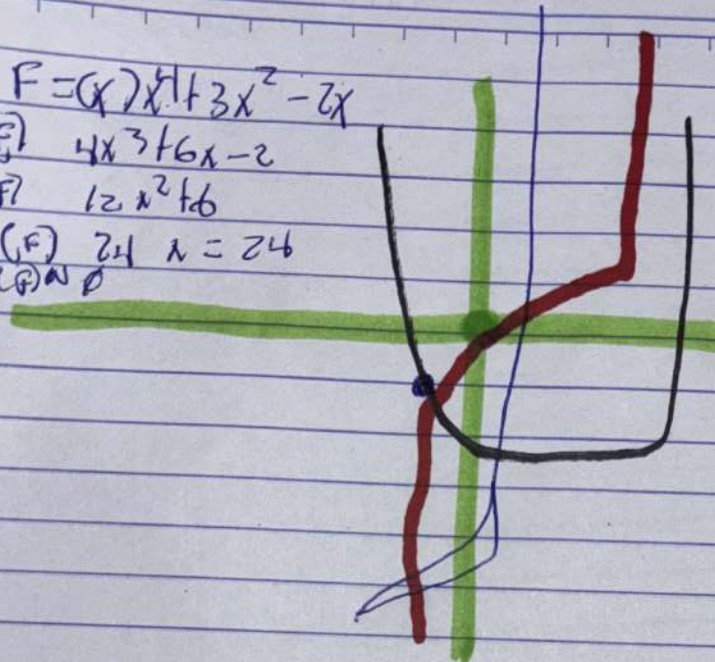 F=(x)x^4+3x² -2x
4x³+6x-2
12x²+6
(F) 24 x = 24